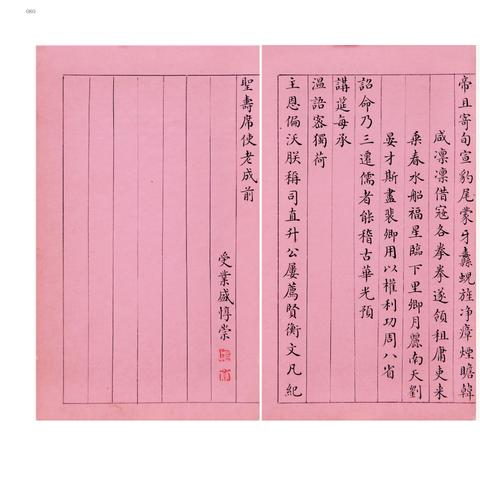 080
帝且寄旬宣豹尾蒙牙纛蜺旌净瘴煙瞻韓
咸凛凛借寇各拳拳遂領租庸吏来
乘春水船福星臨下里卿月麗南天劉
晏才斯盡裴卿用以權利功周八省
詔命乃三遷儒者能稽古華光預
講莚每承
温語客獨荷
主恩偏沃朕稱司直升公屢薦賢衡文凡紀
聖壽席使老成前
受業盛惇崇